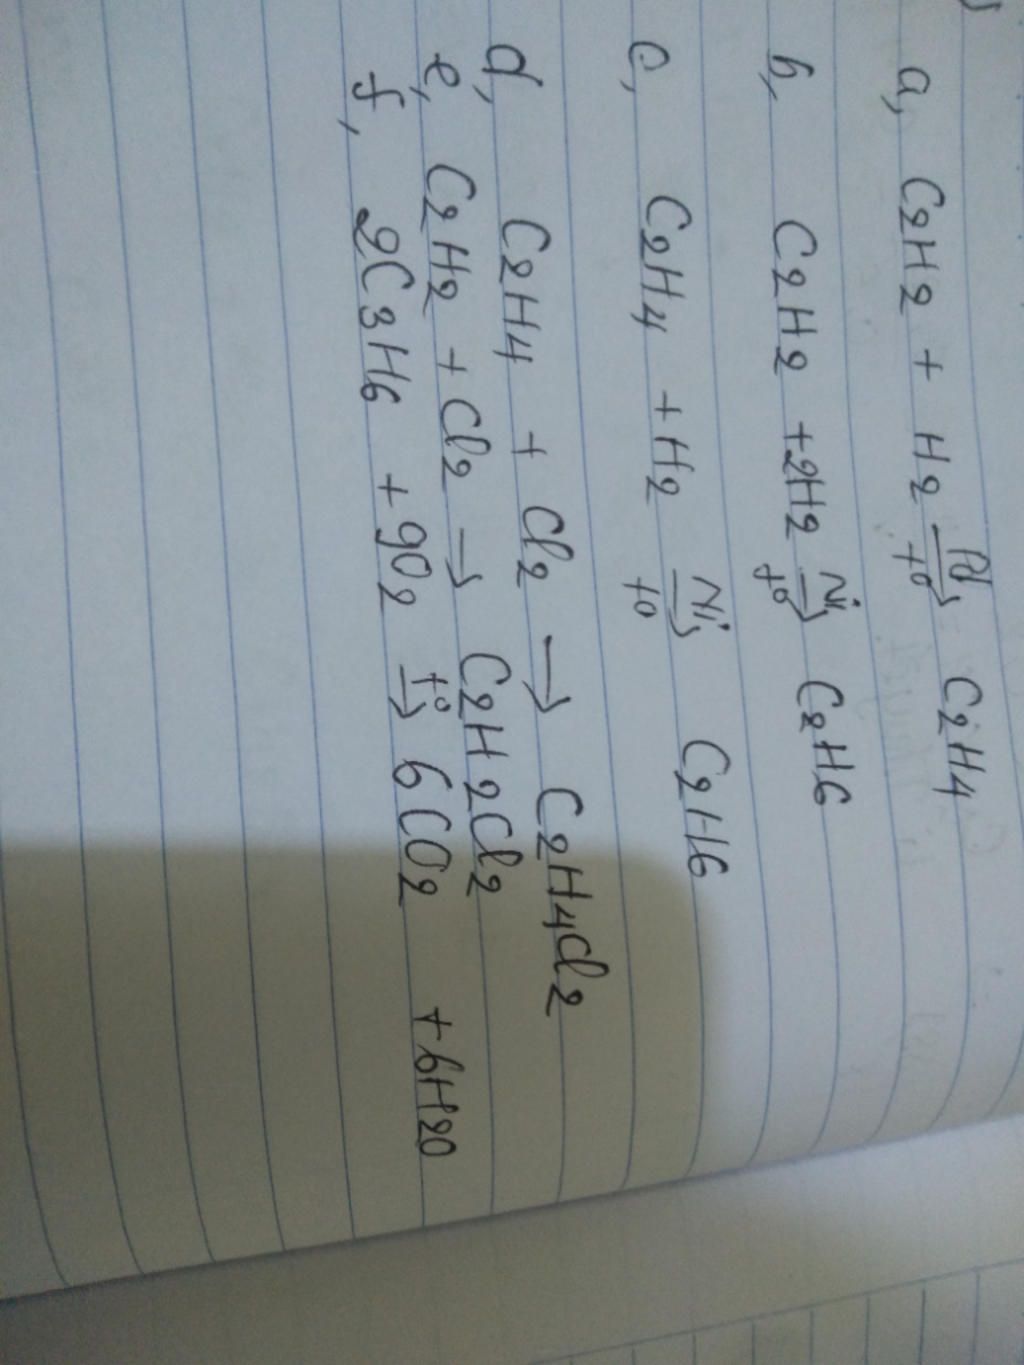 a, C2H2 + H2 Pd→t° C2H4
b, C2H2 +2H2 Ni→t° C2H6
c, C2H4 +H2 Ni→t° C2H6
d, C2H4 + Cl2 → C2H4Cl2
e, C2H2 + Cl2 → C2H2Cl2
f, 2C3H6 + 9O2 t°→ 6CO2 + 6H2O